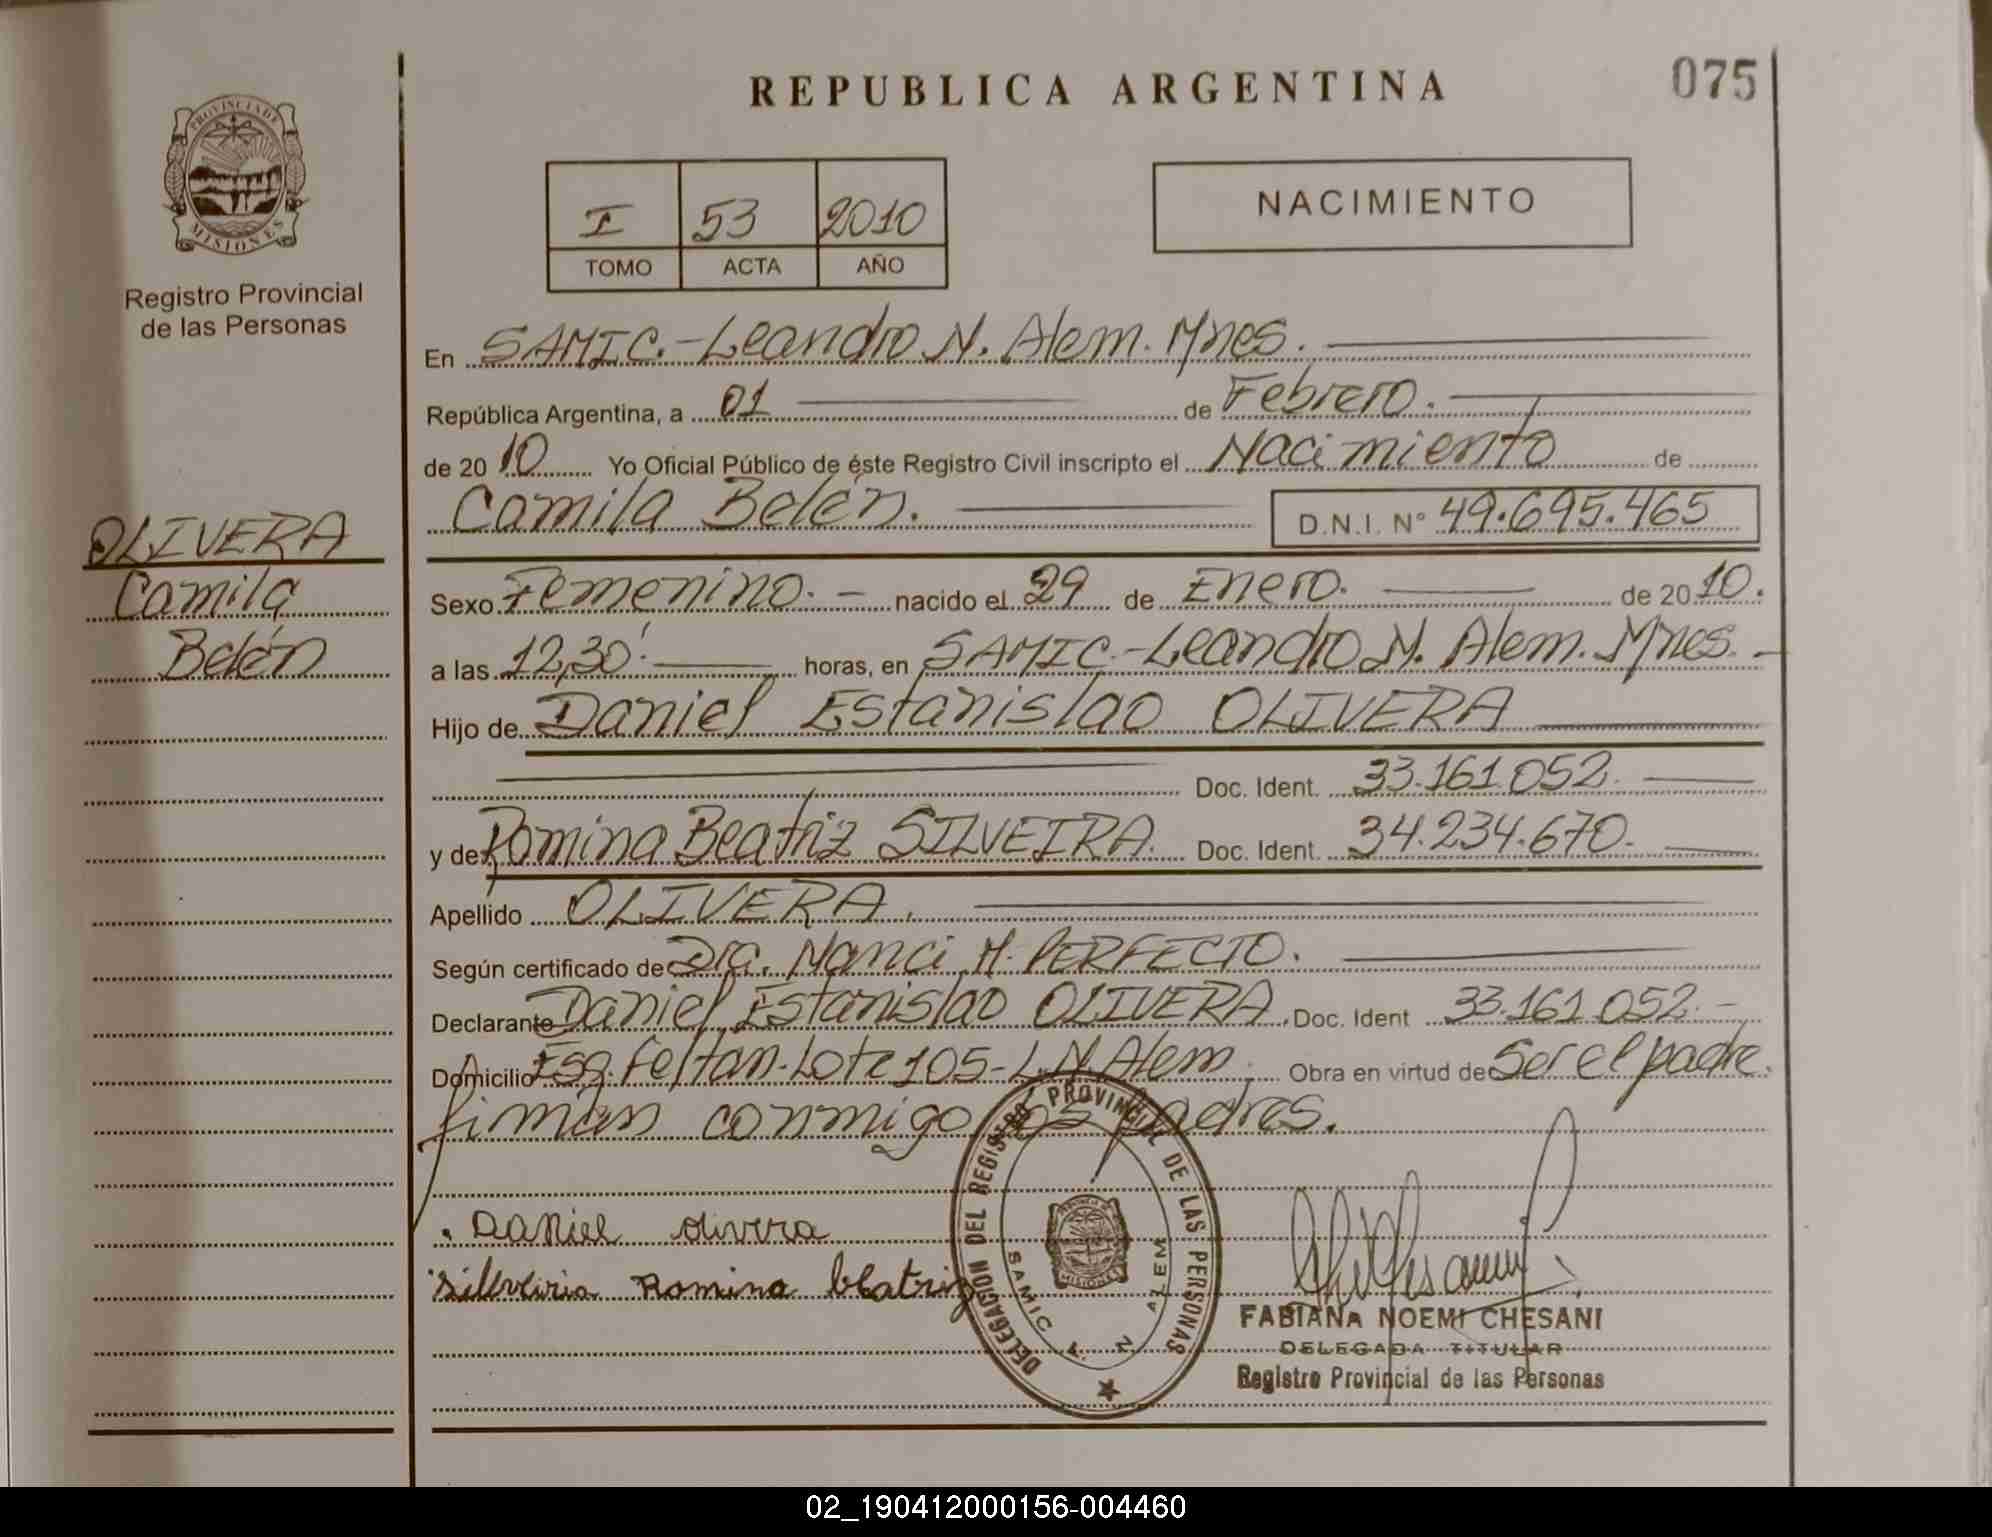 REPUBLICA ARGENTINA
075
PROVINCIA DE
MISIONES
Registro Provincial
de las Personas
I 53 2010
TOMO ACTA AÑO
NACIMIENTO
En SAMIC.-Leandro N. Alem. Mnes.
República Argentina, a 01 de Febrero.
de 2010 Yo Oficial Público de éste Registro Civil inscripto el Nacimiento de
Camila Belén. D.N.I. Nº 49.695.465
OLIVERA
Camila
Belén
Sexo Femenino. - nacido el 29 de Enero. de 2010.
a las 12,30' horas, en SAMIC.-Leandro N. Alem. Mnes. -
Hijo de Daniel Estanislao OLIVERA
Doc. Ident. 33.161.052.
y de Romina Beatriz SILVEIRA. Doc. Ident. 34.234.670.
Apellido OLIVERA.
Según certificado de Dra. Nanci M. PERFECTO.
Declarante Daniel Estanislao OLIVERA. Doc. Ident 33.161.052.-
Domicilio Lote 105-L.N.Alem. Obra en virtud de Ser el padre.
firman conmigo los padres.
Daniel olivera
Romina beatriz
DELEGACION DEL REGISTRO PROVINCIAL DE LAS PERSONAS
SAMIC L. N. ALEM
MISIONES
FABIANA NOEMI CHESANI
DELEGADA TITULAR
Registro Provincial de las Personas
02_190412000156-004460